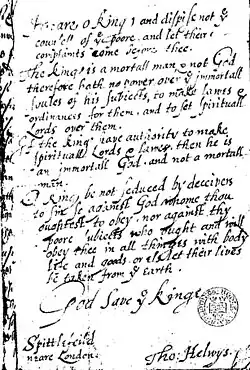 Heare o king, and dispise not ye
counsell of ye poore, and let their
complaints come before thee.
The king is a mortall man, & not God
therefore hath no power over ye immortall
soules of his subiects, to make lawes &
ordinances for them, and to set spirituall
Lords over them.
If the king have authority to make
spirituall Lords & lawes, then he is
an immortall God, and not a mortall
man.
O king, be not seduced by deceivers
to sin so against God whome thou
oughtest to obey, nor against thy
poore subiects who ought and will
obey thee in all thinges with body
life and goods, or els let their lives
be taken from ye earth.
God Save ye Kinge
Spittlefeild
neare London.
Tho: Helwys.